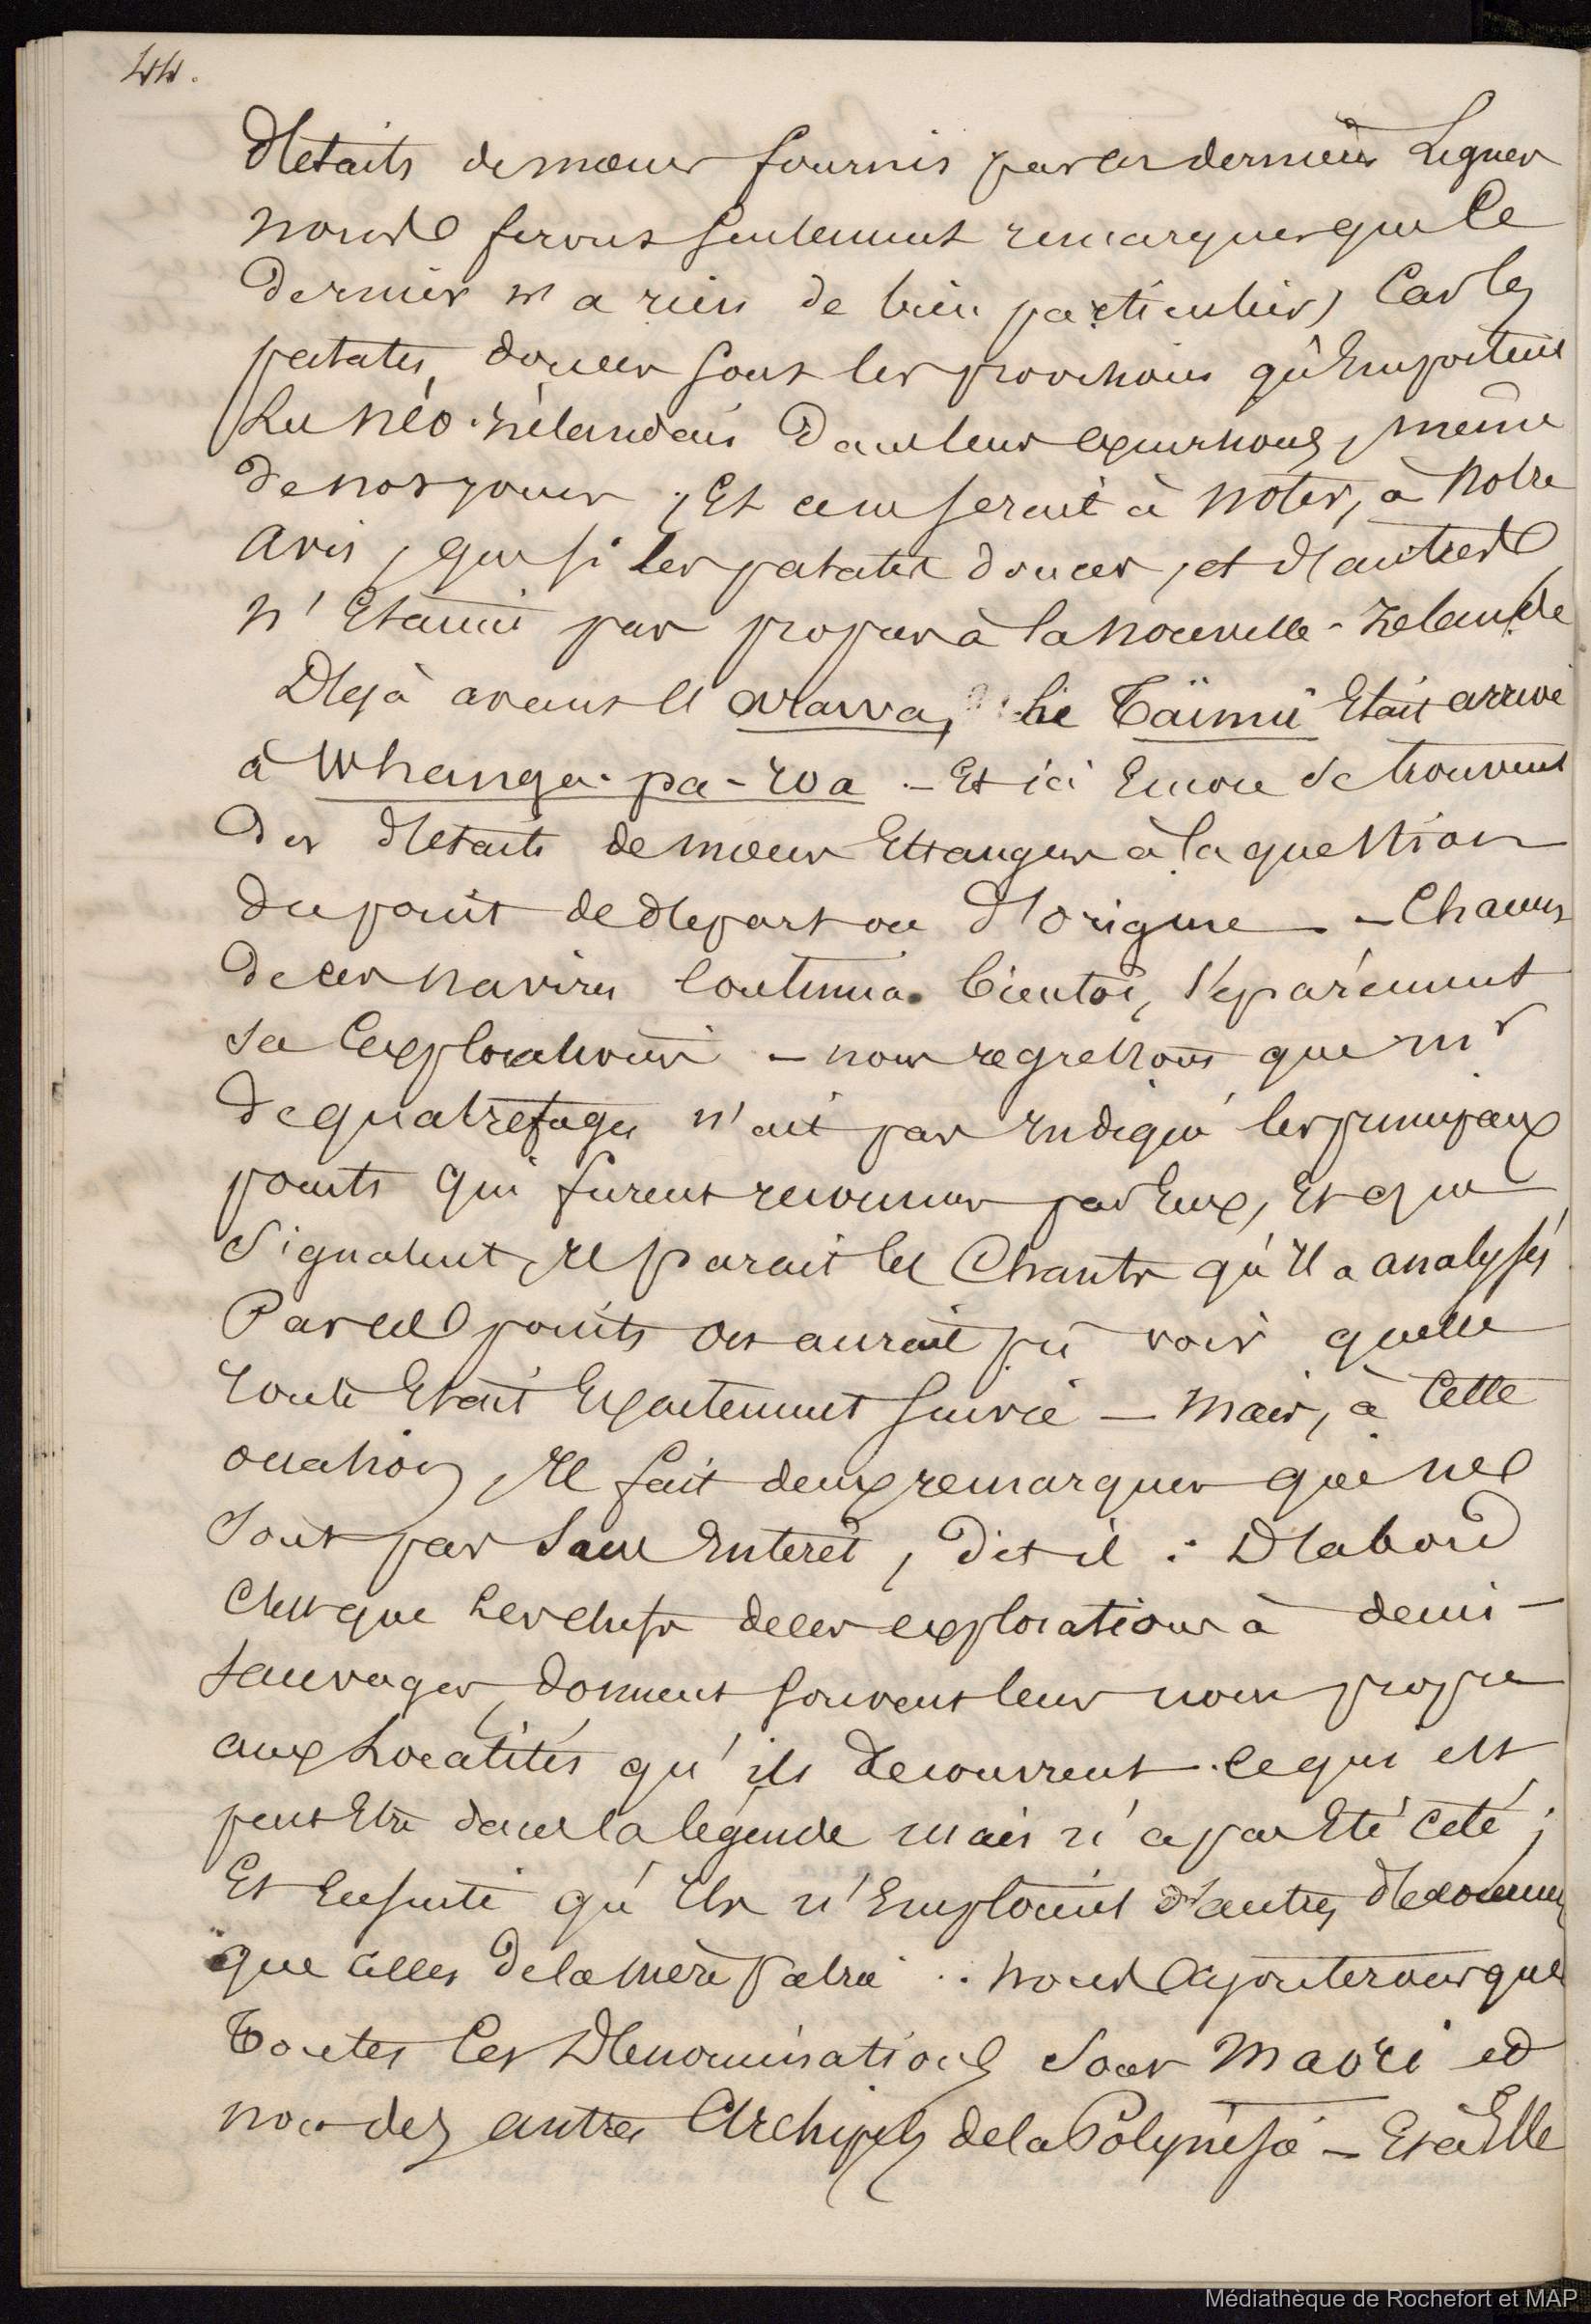 44.
détails de mœurs fournis par ces dernières Lignes
nous ferons seulement remarquer que le
dernier n'a rien de bien particulier, Car les
patates douces sont les provisions qu'Emportent
Les Néo-Zélandais dans leurs excursions, même
de nos jours ; Et ce ne serait à noter, à Notre
Avis, que si les patates douces, et d'autres
n'Etaient pas propres à la Nouvelle-Zelande
Déjà avant l'Arawa, Le Taïnui Etait arrivé
à Whanga-pa-roa. - Et ici Encore se trouvent
Des détails de mœurs Etrangers à la question
du point de départ ou d'origine. - Chacun
de ces navires Continua bientôt, séparément
ses Explorations - nous regrettons que Mr
de quatrefages n'ait pas Indiqué les principaux
points qui furent reconnus par Eux, Et que
signalent, Il parait les Chants qu'Il a analysés
Par ces points on aurait pû voir quelle
route Etait Exactement suivie - Mais, à Cette
occasion, Il fait deux remarques qui ne
sont pas sans Interêt, dit-il : D'abord
C'est que Les chefs de ces explorations à demi-
sauvages, donnent souvent leur nom propre
aux Localités qu'ils decouvrent. ce qui est
peut Etre dans la légende mais n'a pas Eté cité ;
Et Ensuite qu'Ils n'Emploient d'autres
que celles de la Mère patrie .. Nous Ajouterons que
Toutes Ces Dénominations sont Maori et
non des autres Archipels de la Polynésie - Et à Elle
Médiathèque de Rochefort et MAP